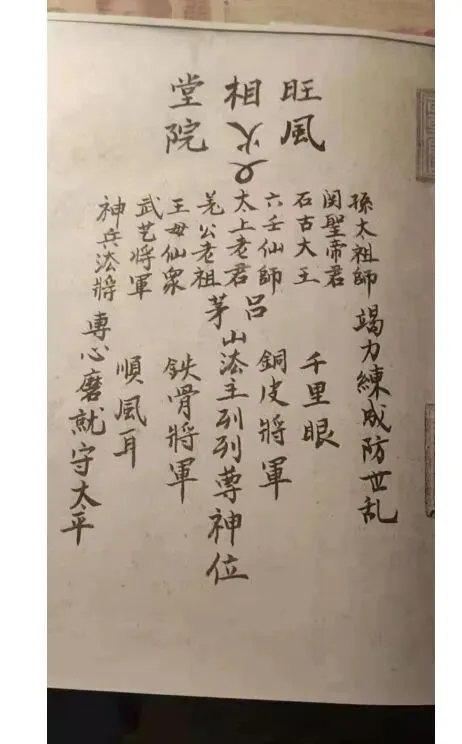 旺風
相火
堂院
孫太祖師
関聖帝君
石古大王
六壬仙師
太上老君
羌公老祖
王母仙衆
武艺將軍
神兵法將
竭力練成防世乱
千里眼
銅皮將軍
呂茅山法主列列尊神位
鉄骨將軍
順風耳
專心磨就守太平